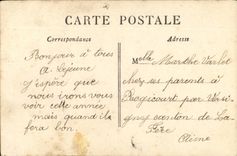 CARTE POSTALE
Correspondance
Adresse
Bonjour à tous
A. Lejeune
J'espère que
nous irons vous
voir cette année
mais quand il
fera bon.
Melle Marthe
chez ses parents à
par
canton de La
Fère
Aisne